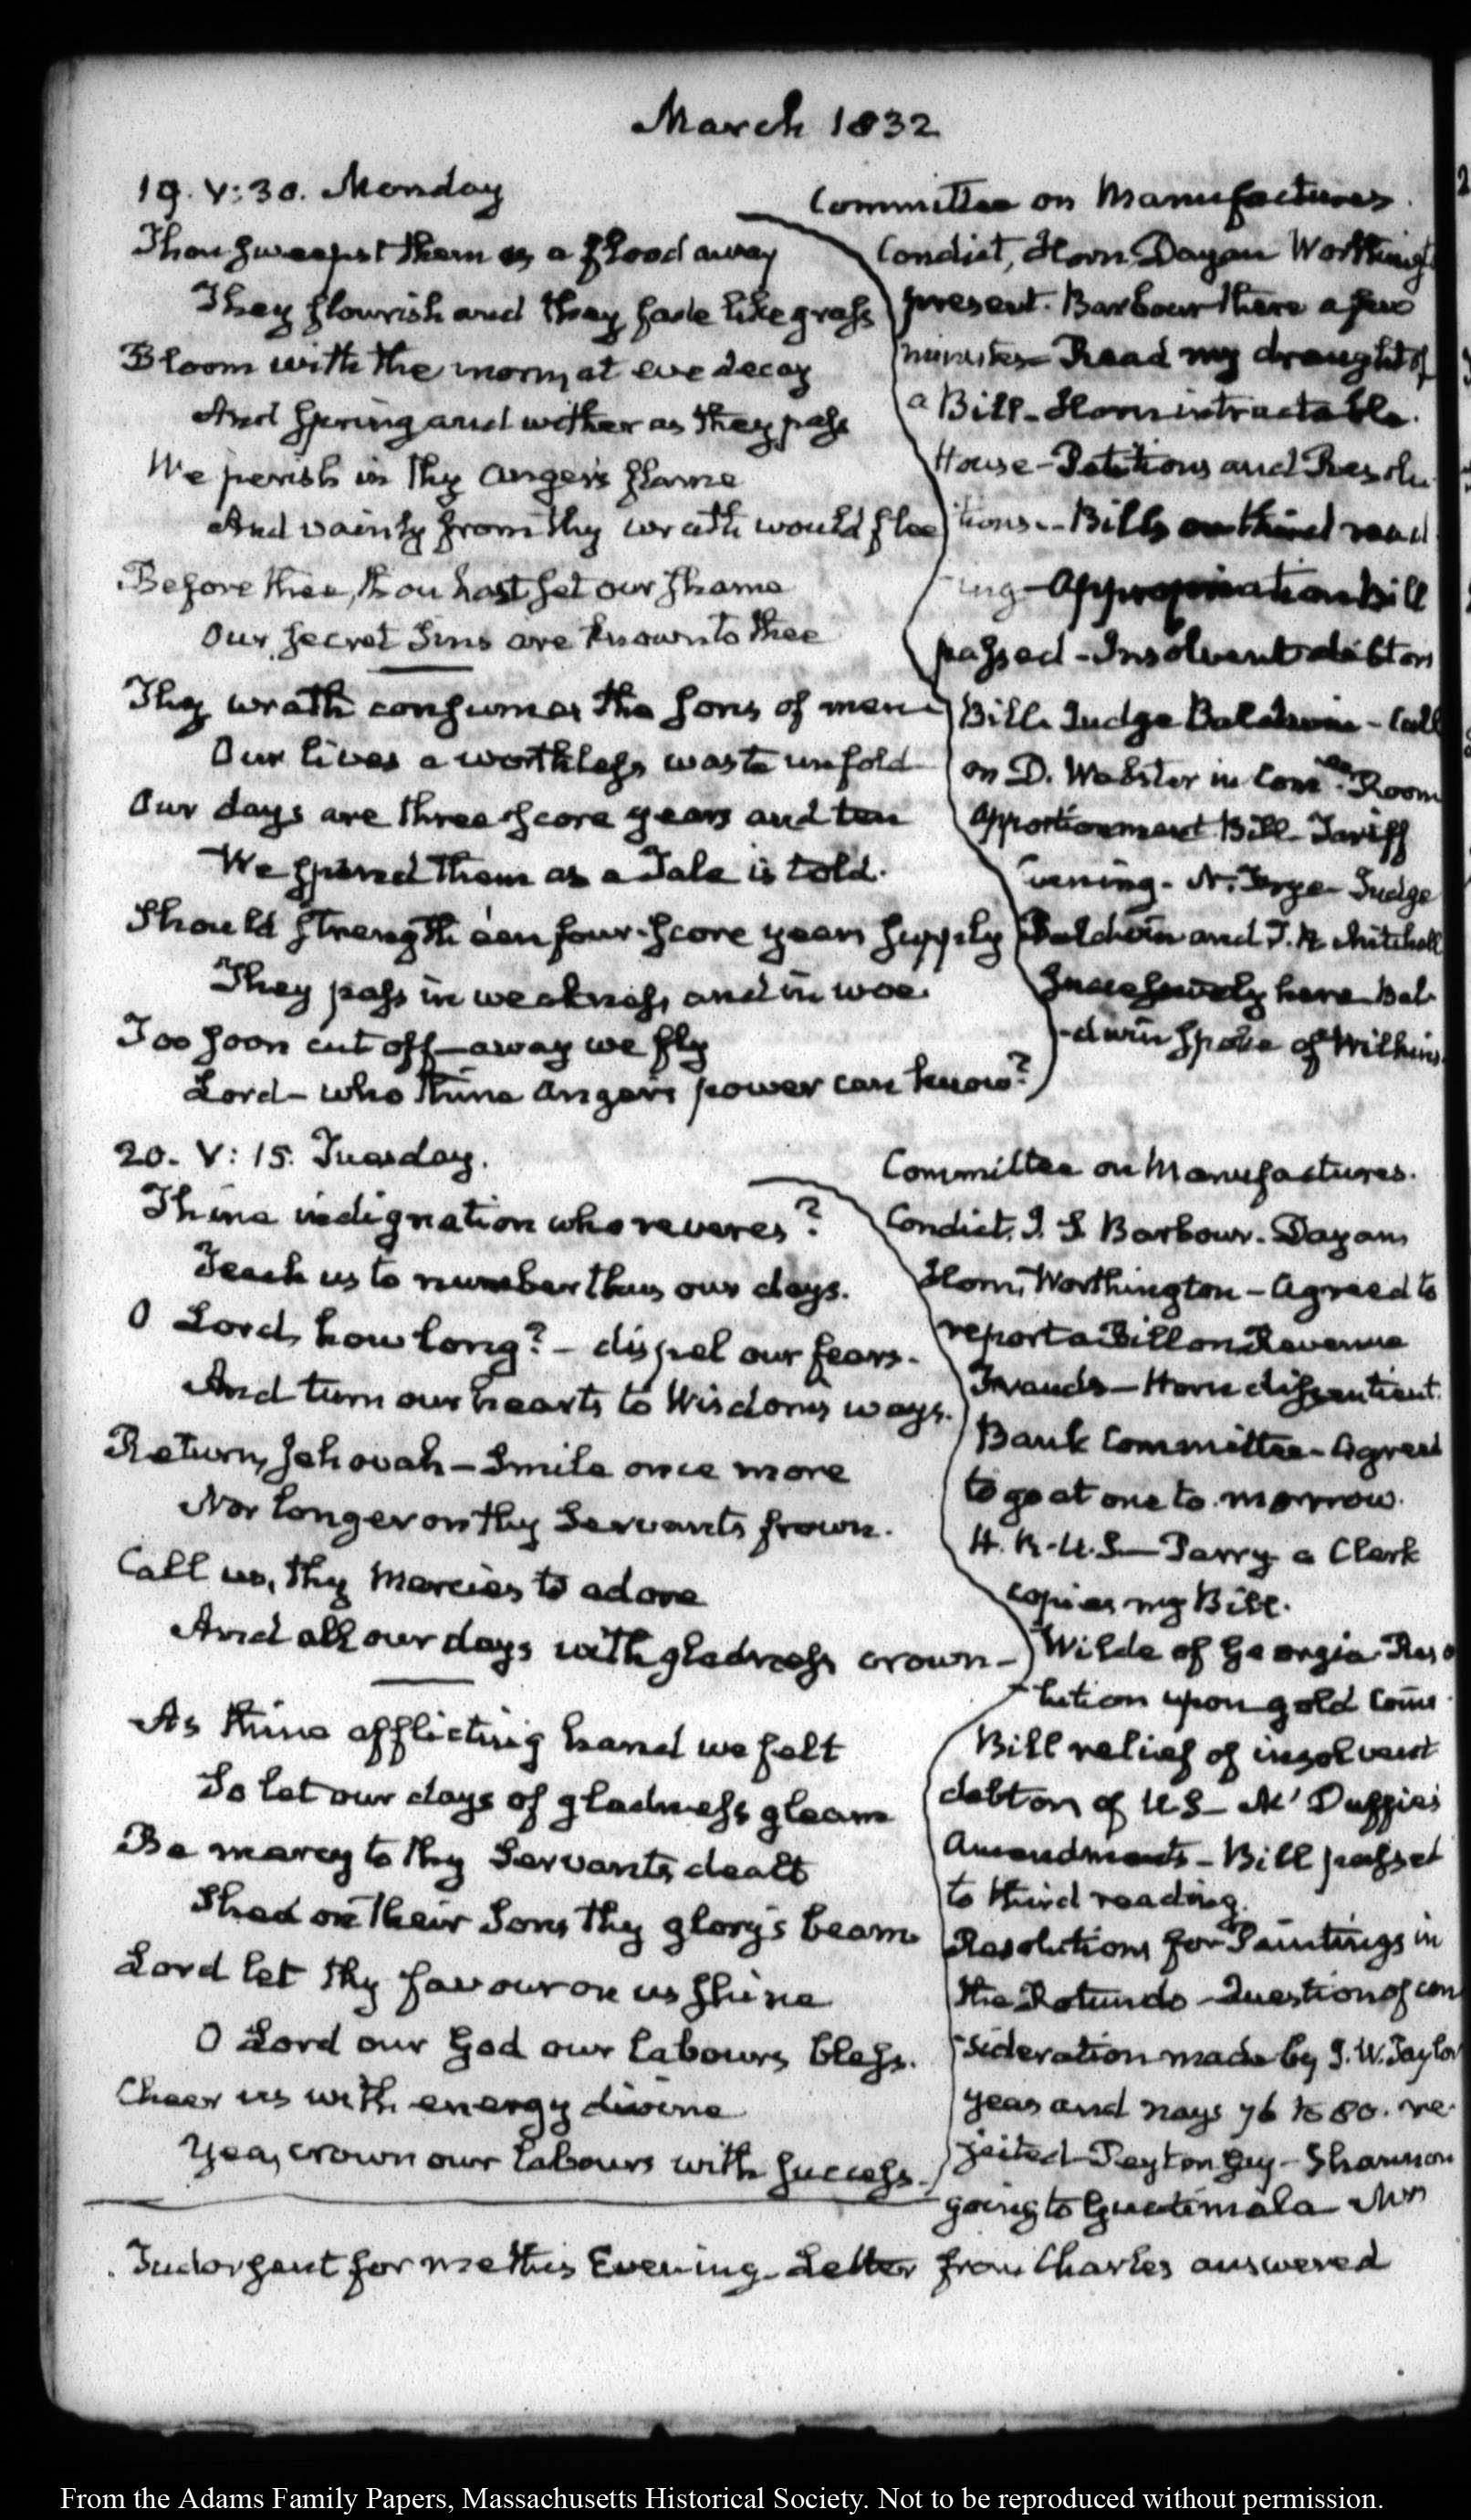 March 1832
19. V:30. Monday
Thou sweepst them as a flood away
They flourish and they fade like grass
Bloom with the morn, at eve decay
And spring and wither as they pass
We perish in thy anger's flame
And vainly from thy wrath would flee
Before thee, thou hast set our shame
Our secret sins are known to thee
Thy wrath consumes the sons of men
Our lives a worthless waste unfold
Our days are three score years and ten
We spend them as a Tale is told.
Should strength e'en four-score years supply
They pass in weakness, and in woe.
Too soon cut off—away we fly
Lord— who thine anger's power can know?
Committee on Manufactures.
Condict, Horn, Dayan Worthingt
present. Barbour there a few
minutes— Read my draught of
a Bill— Horn intractable.
House— Petitions and Resolu
tions— Bills on third read
ing— Appropriation Bill
passed— Insolvent debtors
Bill. Judge Baldwin— Call
on D. Webster in Comee Room
Apportionment Bill— Tariff
Evening— N. Judge
Baldwin and T. R. Mitchell
successively here— Bal
-dwin spoke of Wilkins.
20. V:15. Tuesday.
Thine indignation who reveres?
Teach us to number thus our days.
O Lord, how long?— dispel our fears.
And turn our hearts to Wisdom's ways.
Return, Jehovah— Smile once more
Nor longer on thy Servants frown.
Call us, thy Mercies to adore
And all our days with gladness crown—
As thine afflicting hand we felt
So let our days of gladness gleam
Be mercy to thy Servants dealt
Shed on their Sons thy glory's beam
Lord let thy favour on us shine
O Lord our God our labours bless.
Cheer us with energy divine
Yea, crown our labours with success.
Committee on Manufactures.
Condict. J. S. Barbour. Dayan,
Horn, Worthington— Agreed to
report a Bill on Revenue
Frauds— Horn dissentient.
Bank Committee— Agreed
to go at one to-morrow.
H. R. U.S— Parry a Clerk
copies my Bill.
Wilde of Georgia Reso
lution upon gold Coins
Bill relief of insolvent
debtors of U.S— Mc Duffie's
Amendments— Bill passed
to third reading.
Resolutions for Paintings in
the Rotundo— Question of con
sideration made by J. W. Taylor
yeas and nays 76 to 80. re-
jected— Peyton Gay— Shannon
going to Guatimala Mrs
Tudor sent for me this Evening— Letter from Charles answered
From the Adams Family Papers, Massachusetts Historical Society. Not to be reproduced without permission.